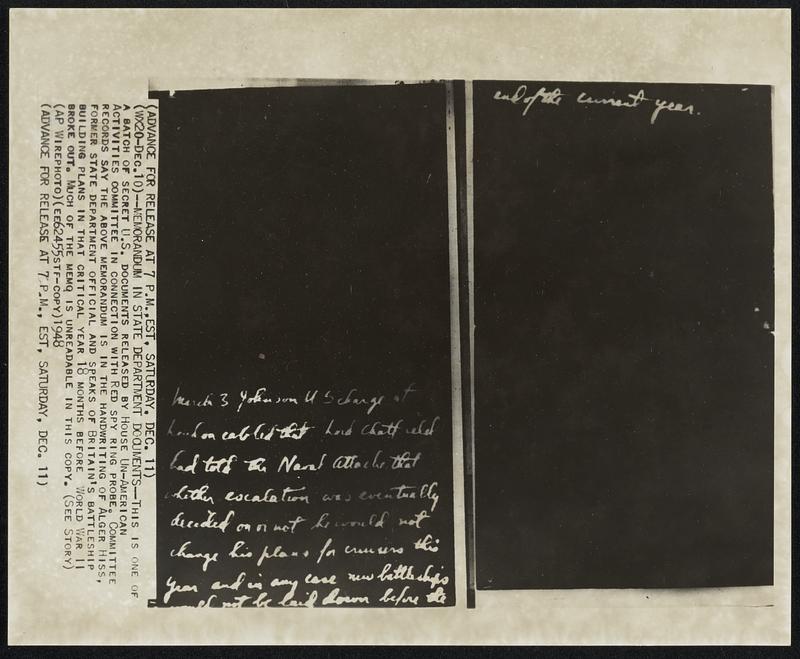 (ADVANCE FOR RELEASE AT 7 P.M., EST, SATURDAY, DEC. 11)
(WX20-DEC.10)--MEMORANDUM IN STATE DEPARTMENT DOCUMENTS--THIS IS ONE OF
A BATCH OF SECRET U.S. DOCUMENTS RELEASED BY HOUSE UN-AMERICAN
ACTIVITIES COMMITTEE IN CONNECTION WITH RED SPY RING PROBE. COMMITTEE
RECORDS SAY THE ABOVE MEMORANDUM IS IN THE HANDWRITING OF ALGER HISS,
FORMER STATE DEPARTMENT OFFICIAL AND SPEAKS OF BRITAIN'S BATTLESHIP
BUILDING PLANS IN THAT CRITICAL YEAR 18 MONTHS BEFORE WORLD WAR II
BROKE OUT. MUCH OF THE MEMO IS UNREADABLE IN THIS COPY. (SEE STORY)
(AP WIREPHOTO)(EE62455STF-COPY)1948
(ADVANCE FOR RELEASE AT 7 P.M., EST, SATURDAY, DEC. 11)
March 3 Johnson U S charge at
London cabled that Lord Chatfield
had told the Naval Attache that
whether escalation was eventually
decided on or not he would not
change his plans for cruisers this
year and in any case new battleships
not be laid down before the
end of the current year.